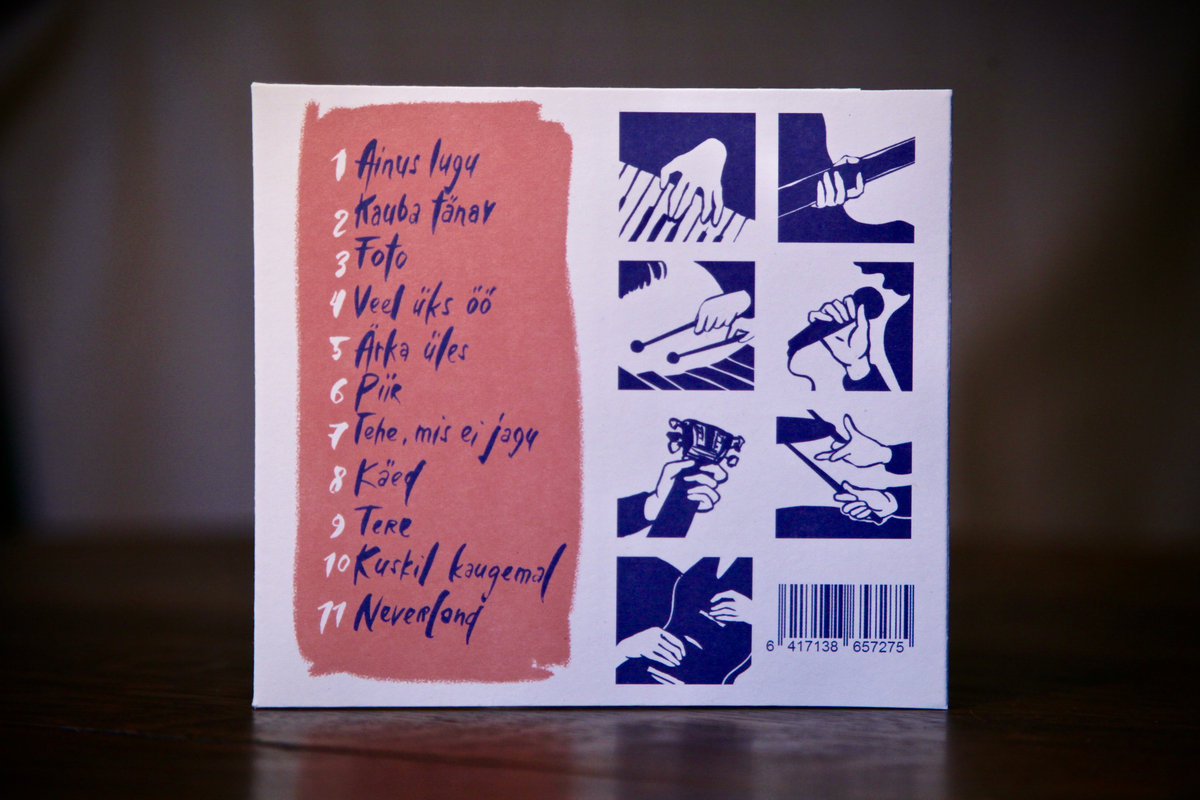 1 Ainus lugu
2 Kauba tänav
3 Foto
4 Veel üks öö
5 Ärka üles
6 Piir
7 Tehe, mis ei jagu
8 Käed
9 Tere
10 Kuskil kaugemal
11 Neverland
6 417138 657275